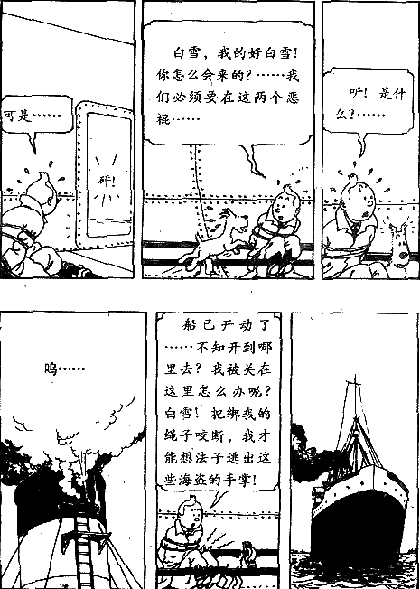 可是……
砰！
白雪，我的好白雪！
你怎么会来的？……我
们必须要在这两个恶
棍……
听！是什
么？……
呜……
船已开动了
……不知开到哪
里去？我被关在
这里怎么办呢？
白雪！把绑我的
绳子咬断，我才
能想法子逃出这
些海盗的手掌！